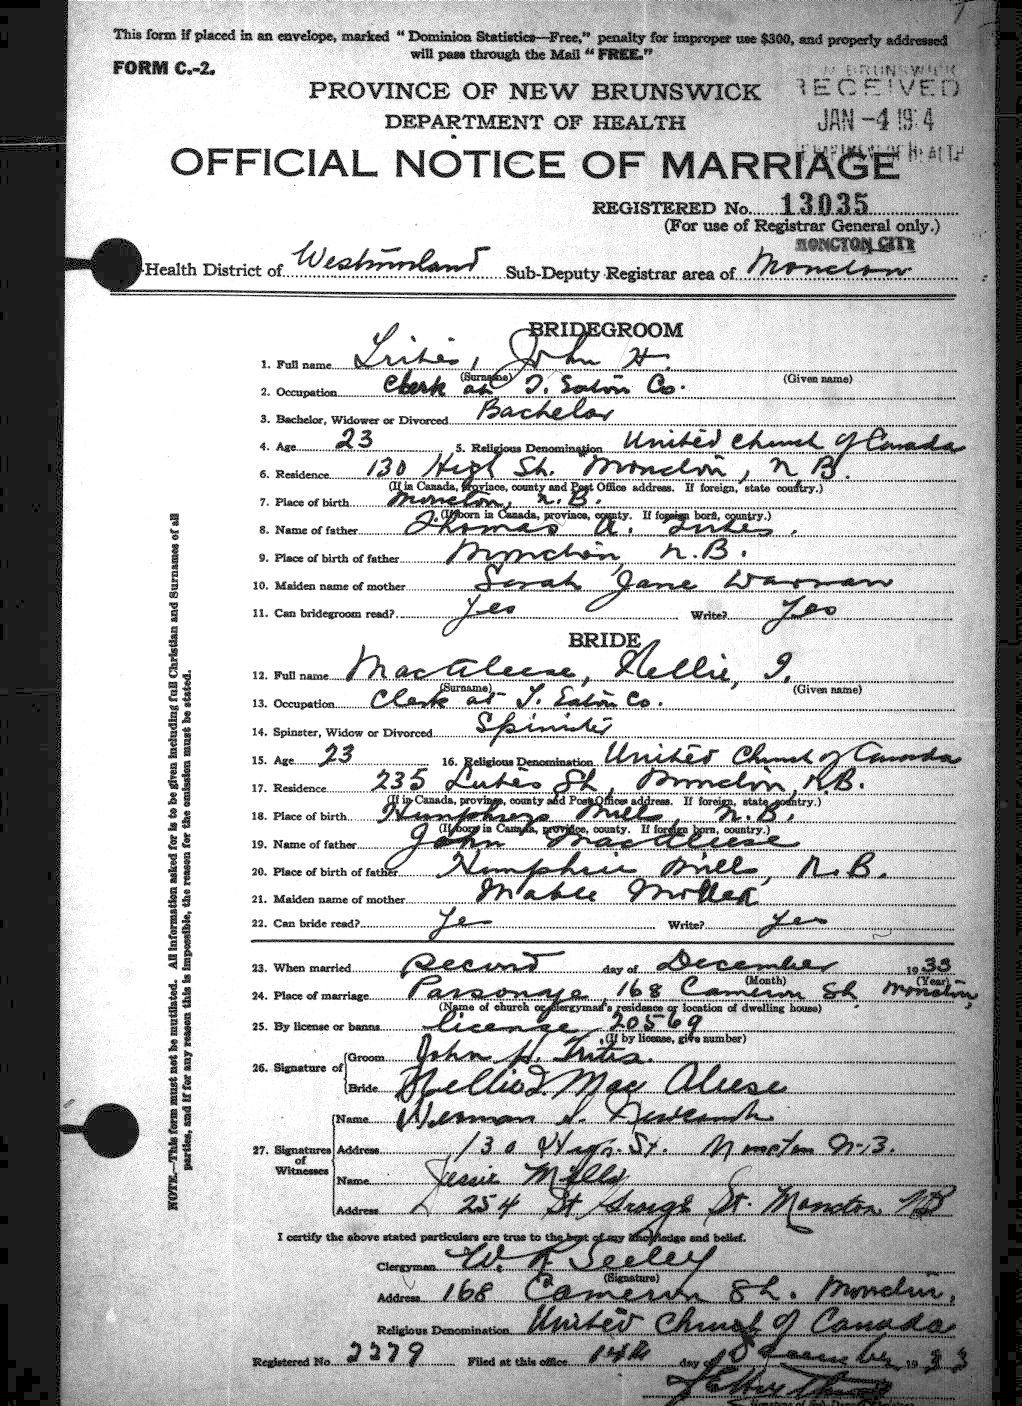 This form if placed in an envelope, marked "Dominion Statistics—Free," penalty for improper use $300, and properly addressed
will pass through the Mail "FREE."
FORM C.-2.
PROVINCE OF NEW BRUNSWICK
DEPARTMENT OF HEALTH
BRUNSWICK
RECEIVED
JAN -4 1934
HEALTH
OFFICIAL NOTICE OF MARRIAGE
REGISTERED No. 13035
(For use of Registrar General only.)
MONCTON CITY
Health District of Westmorland Sub-Deputy Registrar area of Moncton
BRIDEGROOM
1. Full name Trites, John H.
(Surname) (Given name)
2. Occupation Clerk at T. Eaton Co.
3. Bachelor, Widower or Divorced Bachelor
4. Age 23 5. Religious Denomination United Church of Canada
6. Residence 130 High St. Moncton, N.B.
(If in Canada, province, county and Post Office address. If foreign, state country.)
7. Place of birth Moncton, N.B.
(If born in Canada, province, county. If foreign born, country.)
8. Name of father Thomas A. Trites.
9. Place of birth of father Moncton, N.B.
10. Maiden name of mother Sarah Jane Warman
11. Can bridegroom read? Yes Write? Yes
BRIDE
12. Full name MacAleese, Nellie, I.
(Surname) (Given name)
13. Occupation Clerk at T. Eaton Co.
14. Spinster, Widow or Divorced Spinster
15. Age 23 16. Religious Denomination United Church of Canada
17. Residence 235 Lutes St, Moncton, N.B.
(If in Canada, province, county and Post Office address. If foreign, state country.)
18. Place of birth Humphreys Mills, N.B.
(If born in Canada, province, county. If foreign born, country.)
19. Name of father John MacAleese
20. Place of birth of father Humphries Mills, N.B.
21. Maiden name of mother Mable
22. Can bride read? Yes Write? Yes
23. When married Second day of December 1933
(Month) (Year)
24. Place of marriage Parsonage, 168 Cameron St. Moncton,
(Name of church or clergyman's residence or location of dwelling house)
25. By license or banns license 20569
(If by license, give number)
26. Signature of Groom John H. Trites.
Bride Nellie I. MacAleese
27. Signatures of Witnesses
Name
Address 130 High St. Moncton N.B.
Name Jessie Mills
Address 254 St George St. Moncton NB
I certify the above stated particulars are true to the best of my knowledge and belief.
Clergyman W. R. Seeley
(Signature)
Address 168 Cameron St. Moncton,
Religious Denomination United Church of Canada
Registered No. 2279 Filed at this office 14th day of December 1933
NOTE.—This form must not be mutilated. All information asked for is to be given including full Christian and Surnames of all
parties, and if for any reason this is impossible, the reason for the omission must be stated.